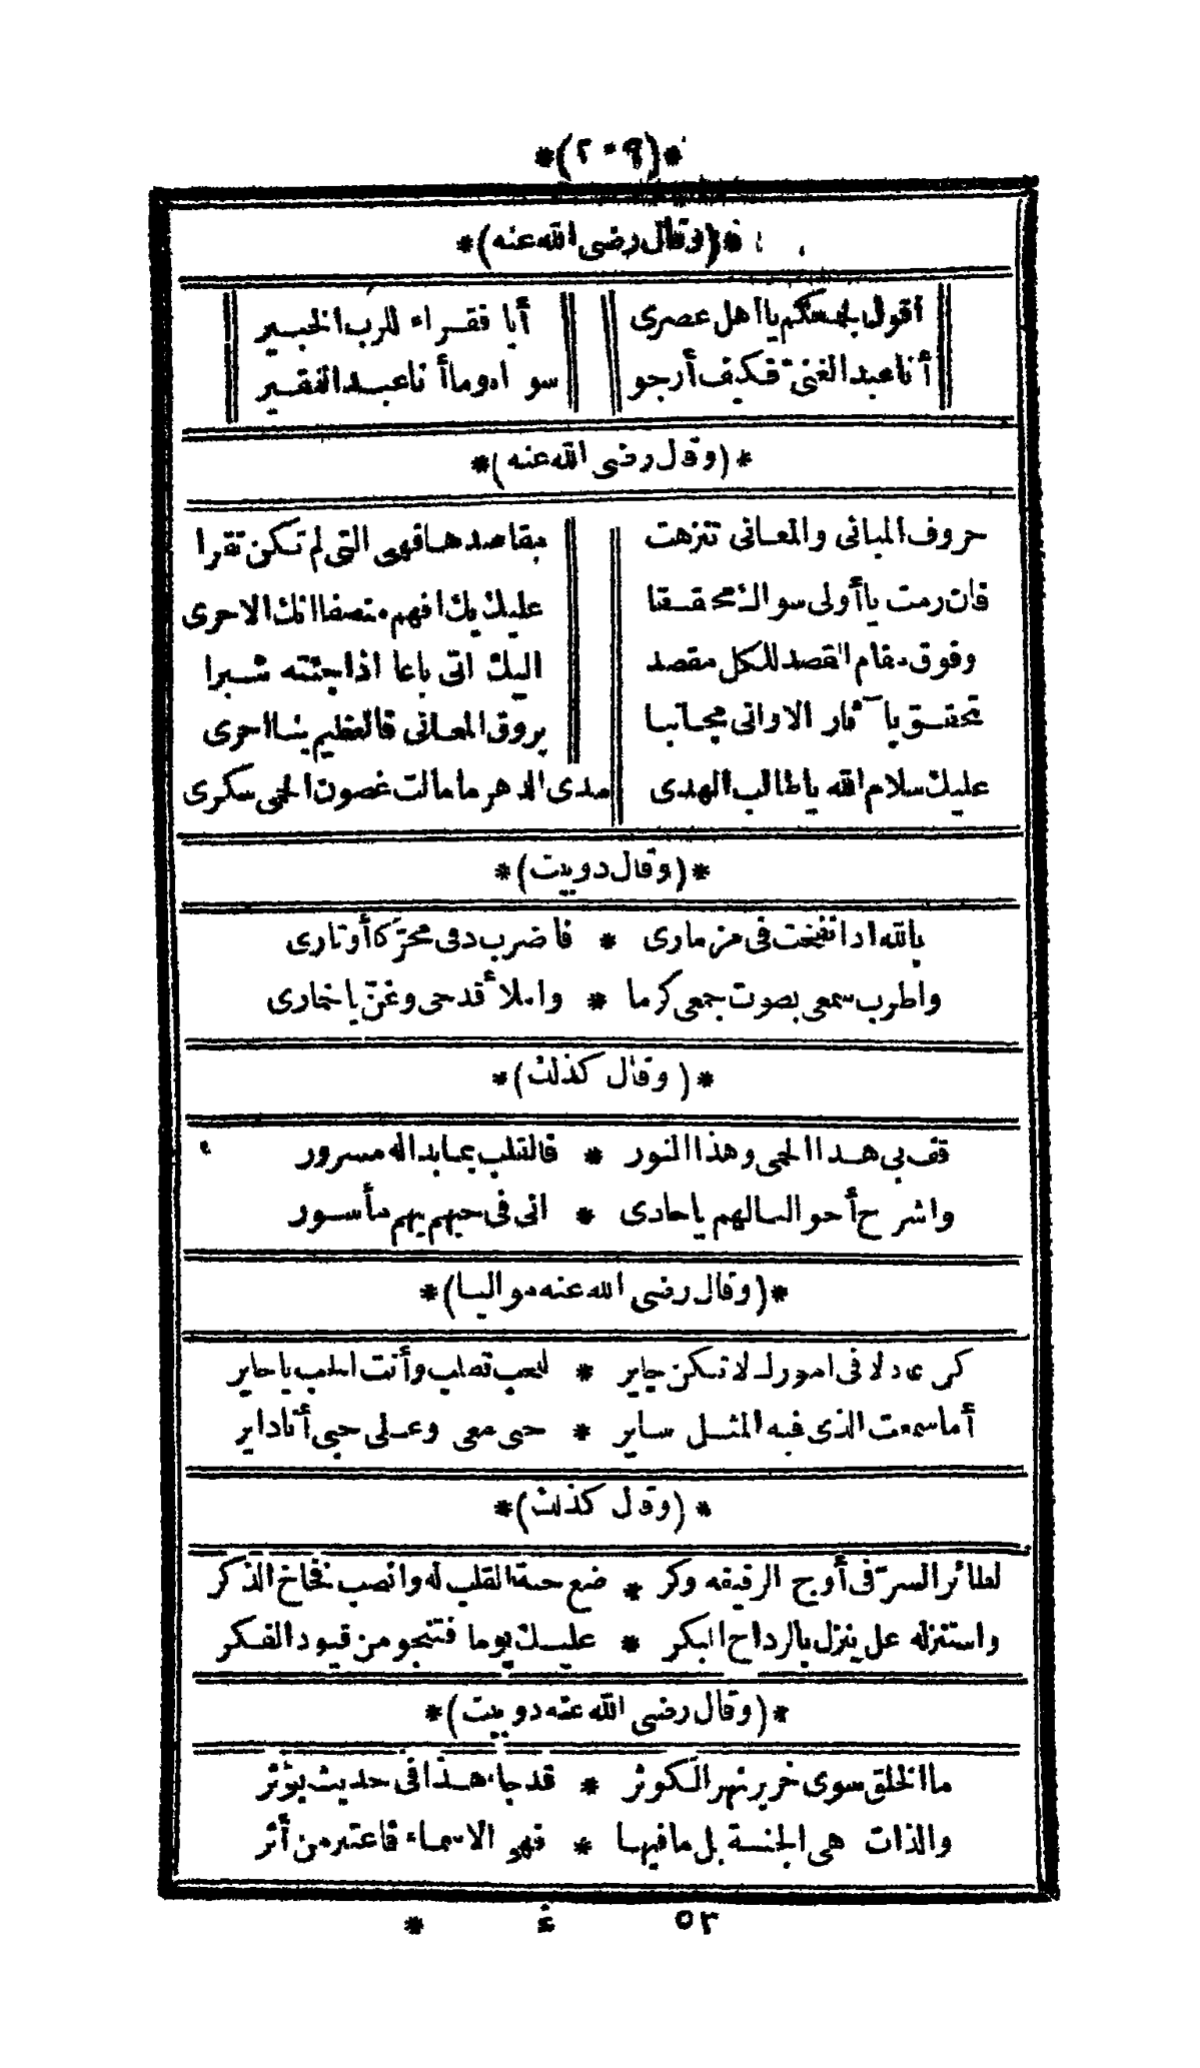 *(٢٠٩)*
*(وقال رضى الله عنه)*
أقول لجمعكم يا أهل عصرى أيا فقراء للرب الخبير
أنا عبد الغنى فكيف أرجو سواه وما أنا عبد الفقير
*(وقال رضى الله عنه)*
حروف المبانى والمعانى تنزهت مقاصدها فهى التى لم تكن تقرا
فان رمت يا أولى سوالك محققا عليك بك افهم منصفا انك الاحرى
وفوق مقام القصد للكل مقصد اليك اتى باعا اذا جئته شبرا
تحقق با آثار الاوانى مجانبا بروق المعانى فالعظيم بنا احرى
عليك سلام الله يا طالب الهدى مدى الدهر ما مالت غصون الحمى سكرى
*(وقال دوبيت)*
بالله اذا نفخت فى مزمارى * فاضرب دفى محرّكا أوتارى
واطرب سمعى بصوت جمعى كرما * واملأ قدحى وغنّ يا خمارى
*(وقال كذلك)*
قف بى هذا الحمى وهذا النور * فالقلب بما بدا له مسرور
واشرح أحوالنا لهم يا حادى * انى فى حبهم بهم مأسور
*(وقال رضى الله عنه مواليا)*
كن عادلا فى امورك لا تكن جاير * لمن تطلب وأنت الحب يا حاير
أما سمعت الذى فيه المثل ساير * حبى معى وعلى حبى أنا داير
*(وقال كذلك)*
لطائر السرّ فى أوج الرقيقه وكر * ضع حبة القلب له وانصب فخاخ الذكر
واستنزله عل ينزل بالرداح البكر * عليك يوما فتنجو من قيود الفكر
*(وقال رضى الله عنه دوبيت)*
ما الخلق سوى خرير نهر الكوثر * قد جاء هذا فى حديث يؤثر
والذات هى الجنة بل ما فيها * فهو الاسماء فاعتبر من أثر
٥٣ غ *